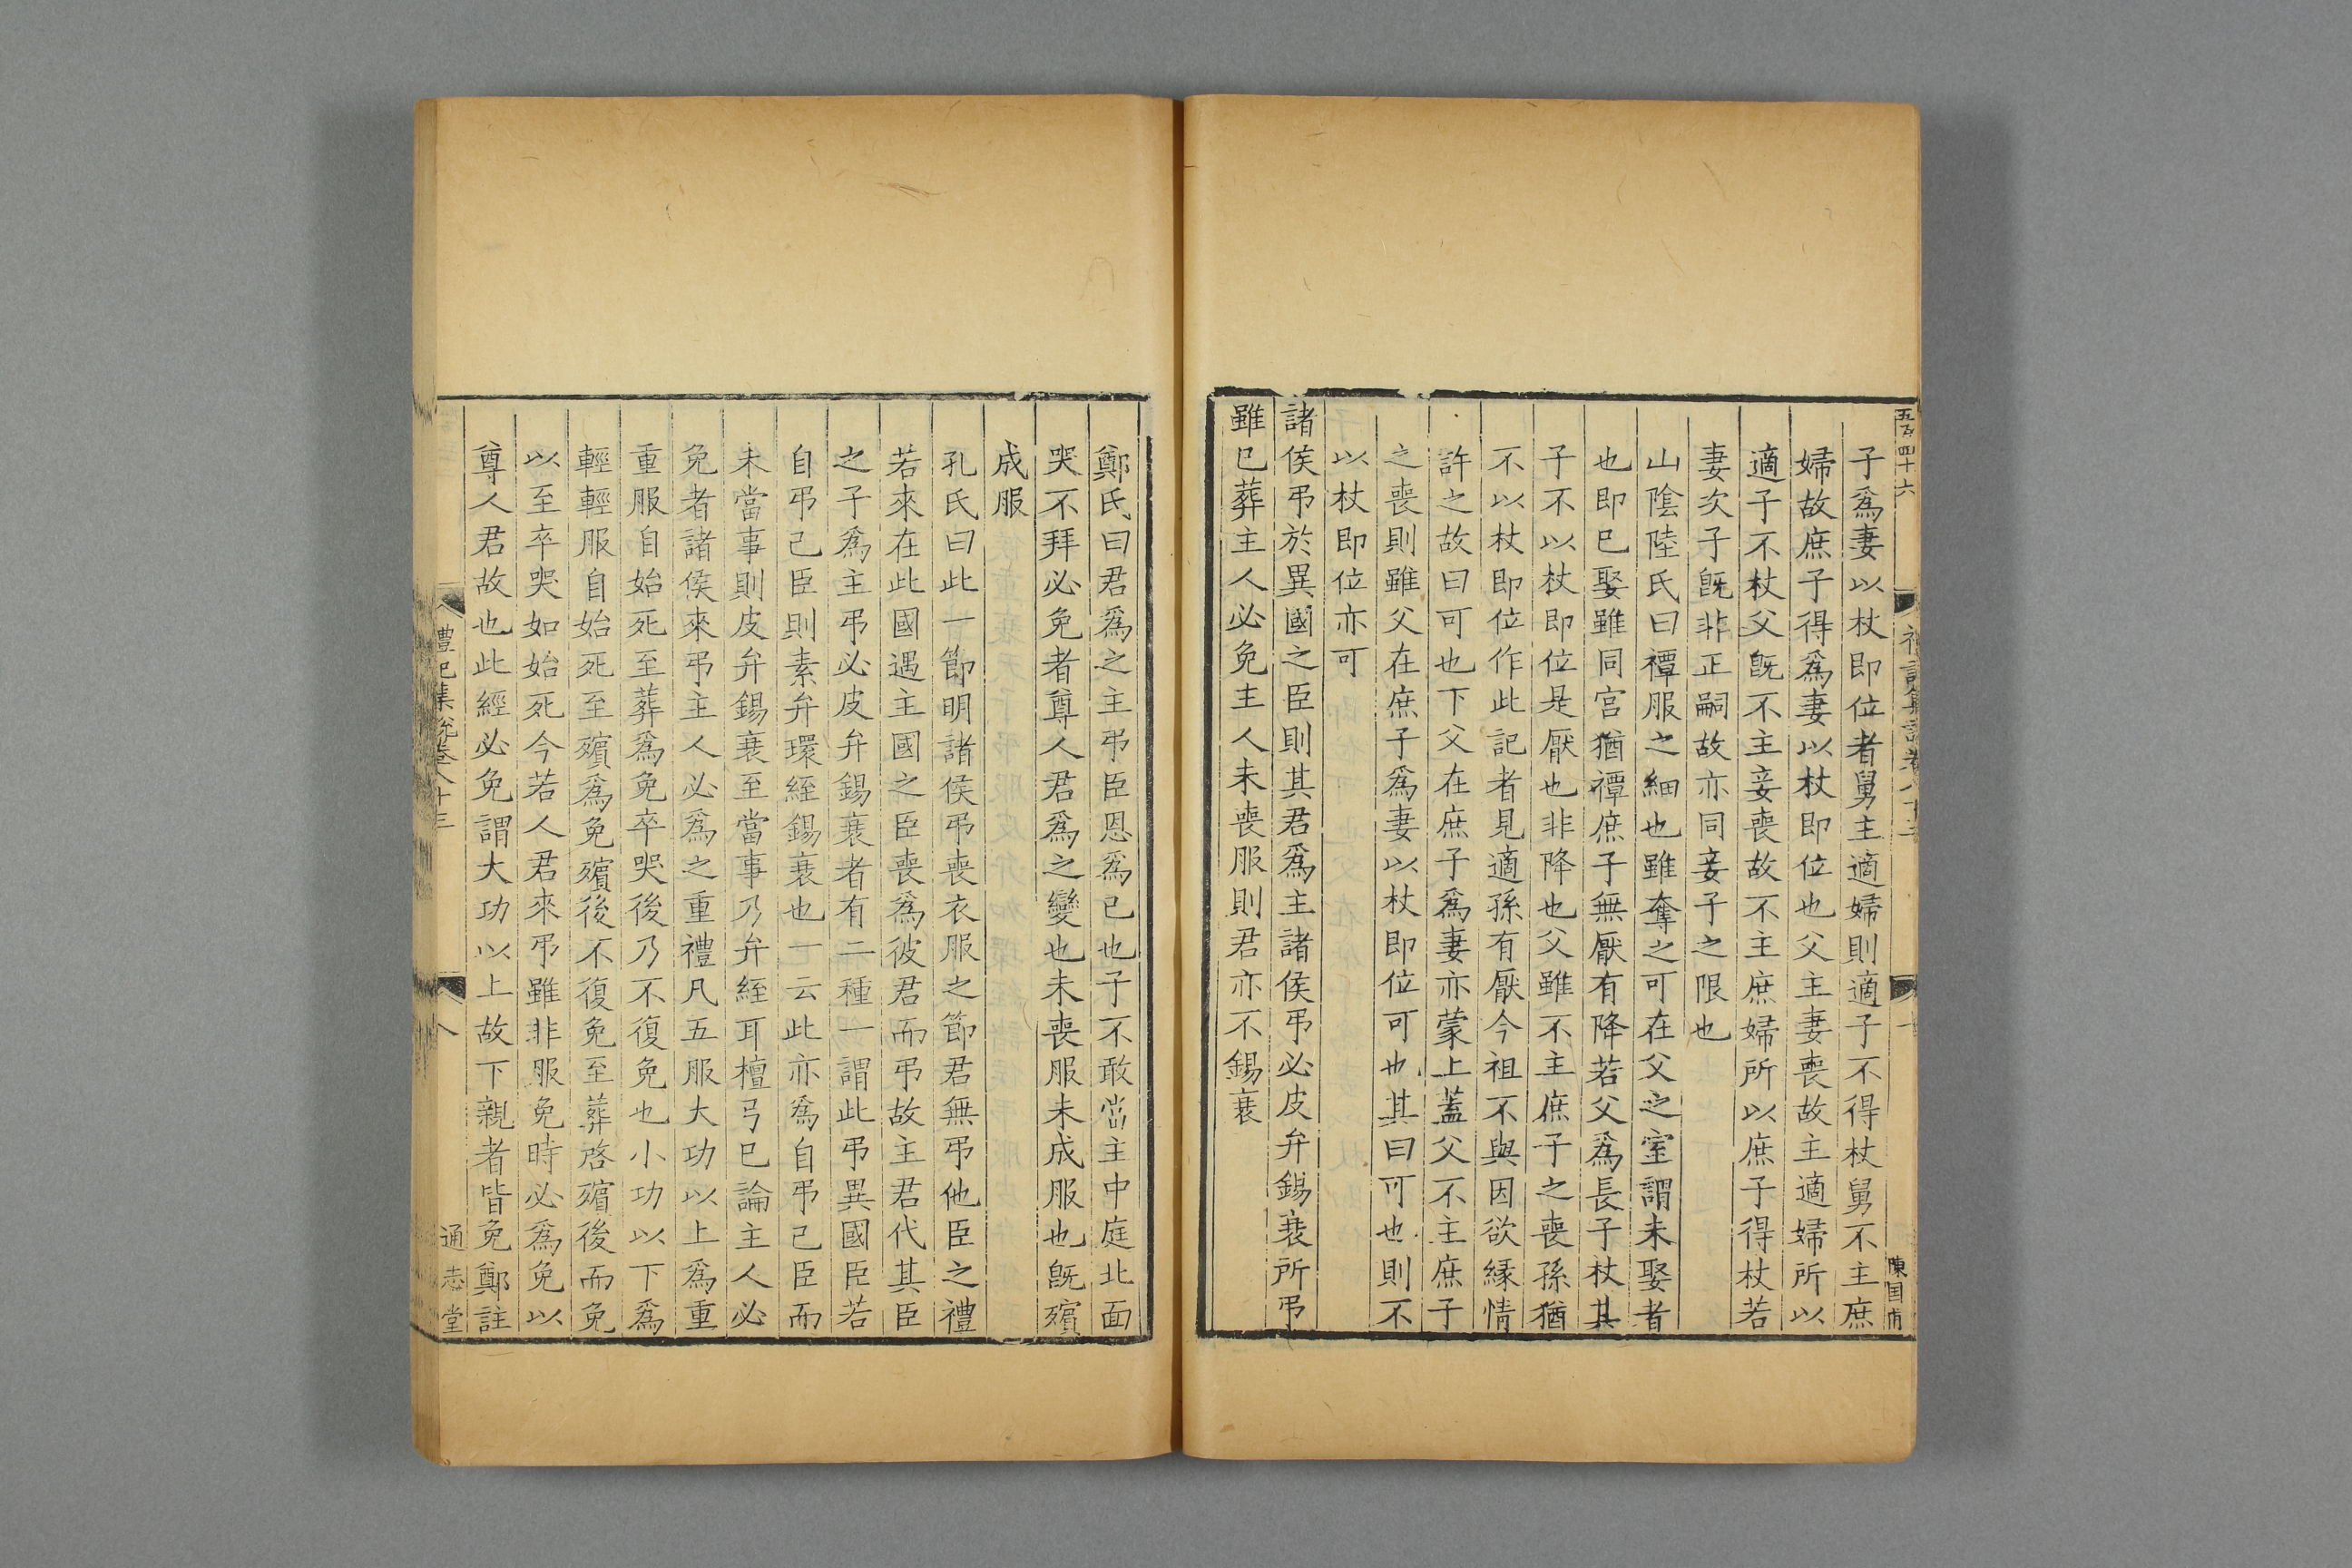 子爲妻以杖即位者舅主適婦則適子不得杖舅不主庶
婦故庶子得爲妻以杖即位也父主妻喪故主適婦所以
適子不杖父旣不主妾喪故不主庶婦所以庶子得杖若
妻次子旣非正嗣故亦同妾子之限也
山陰陸氏曰禫服之細也雖奪之可在父之室謂未娶者
也即已娶雖同宫猶禫庶子無厭有降若父爲長子杖其
子不以杖即位是厭也非降也父雖不主庶子之喪孫猶
不以杖即位作此記者見適孫有厭今祖不與因欲緣情
許之故曰可也下父在庶子爲妻亦蒙上蓋父不主庶子
之喪則雖父在庶子爲妻以杖即位可也其曰可也則不
以杖即位亦可
諸侯弔於異國之臣則其君爲主諸侯弔必皮弁錫衰所弔
雖已葬主人必免主人未喪服則君亦不錫衰
鄭氏曰君爲之主弔臣恩爲已也子不敢當主中庭北面
哭不拜必免者尊人君爲之變也未喪服未成服也旣殯
成服
孔氏曰此一節明諸侯弔喪衣服之節君無弔他臣之禮
若來在此國遇主國之臣喪爲彼君而弔故主君代其臣
之子爲主弔必皮弁錫衰者有二種一謂此弔異國臣若
自弔己臣則素弁環絰錫衰也一云此亦爲自弔己臣而
未當事則皮弁錫衰至當事乃弁絰耳檀弓已論主人必
免者諸侯來弔主人必爲之重禮凡五服大功以上爲重
重服自始死至葬爲免卒哭後乃不復免也小功以下爲
輕輕服自始死至殯爲免殯後不復免至葬啓殯後而免
以至卒哭如始死今若人君來弔雖非服免時必爲免以
尊人君故也此經必免謂大功以上故下親者皆免鄭註
禮記集說卷八十三
八
通志堂